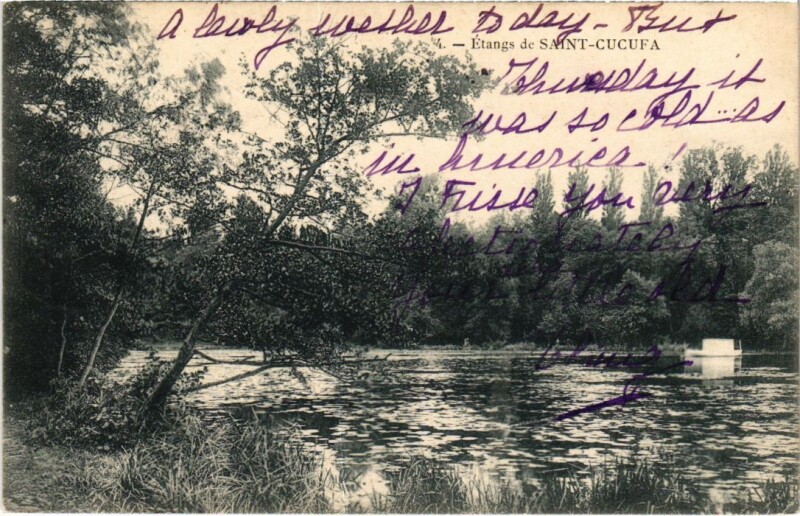 A lowly wether today - But
4. — Étangs de SAINT-CUCUFA
Thursday it
was so cold... as
in America!
I Kisse you very
your old